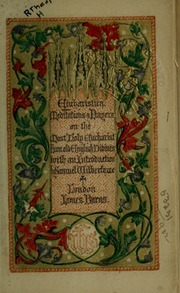 Eucharistica.
Meditations & Prayers
on the
Most Holy Eucharist
from old English Divines
with an Introduction
by Samuel Wilberforce
London
James Burns.